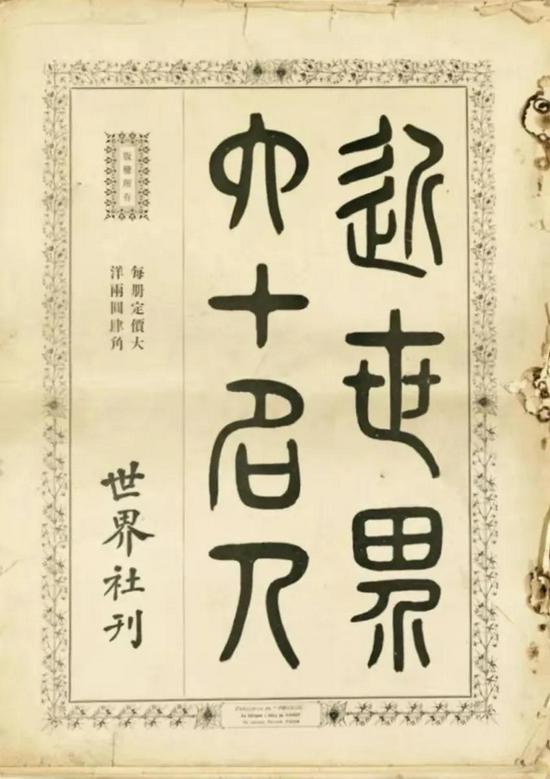 近世界
六十名人
版權所有
每册定價大
洋兩圓肆角
世界社刊